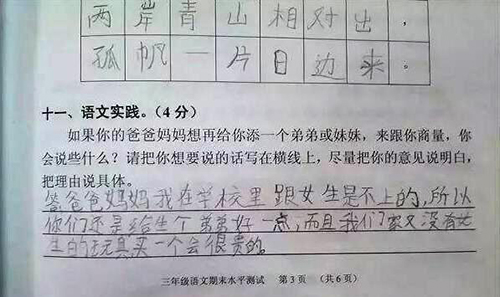 两岸青山相对出，
孤帆一片日边来。
十一、语文实践。（4分）
如果你的爸爸妈妈想再给你添一个弟弟或妹妹，来跟你商量，你
会说些什么？请把你想要说的话写在横线上，尽量把你的意见说明白，
把理由说具体。
答爸爸妈妈我在学校里跟女生是不上的，所以
你们还是给生个弟弟好一点，而且我们家又没有女
生的玩具买一个会很贵的。
三年级语文期末水平测试 第3页 （共6页）